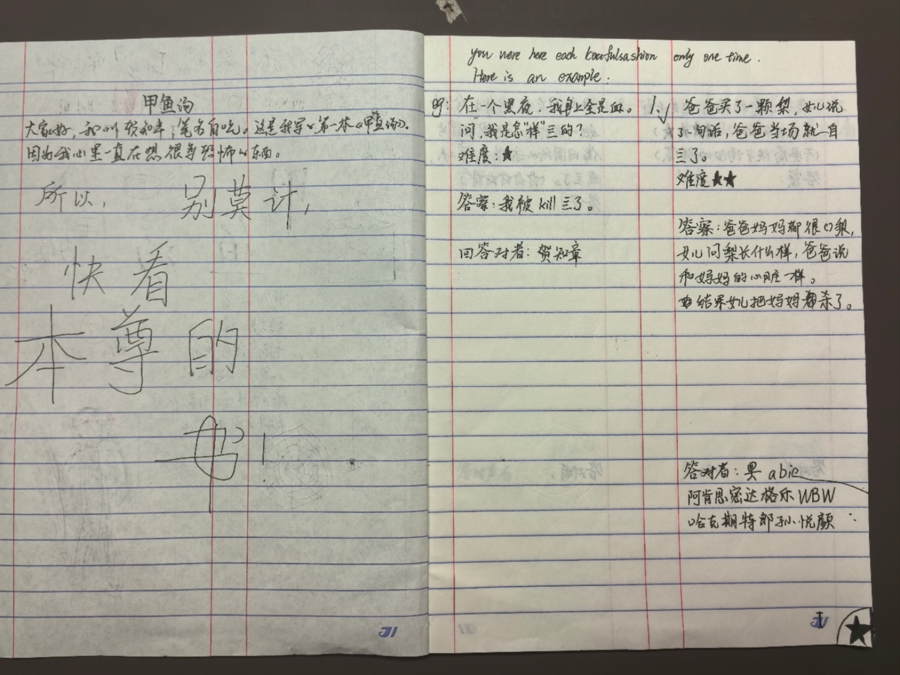 甲鱼汤
大家好,我叫贺知年,笔名自吃。这是我写第一本《甲鱼汤》。
因为我心里一直在想很等恐怖东西。
所以, 别莫计,
快看
本尊的
书!
you were here each only one time.
Here is an example.
在一个黑夜,我身上全是血。
问,我是怎“样”三的?
难度:★
答案:我被kill三了。
回答对者:贺知章
1. 爸爸买了一颗梨,女儿说
了一句话,爸爸当场就自
三了。
难度★★
答案:爸爸妈妈都很口渴,
女儿问梨长什么样,爸爸说
和妈妈的心脏一样。
结果女儿把妈妈都杀了。
答对者:果 abie
阿肯思密达格乐WBW
哈克斯特郎孙悦颜